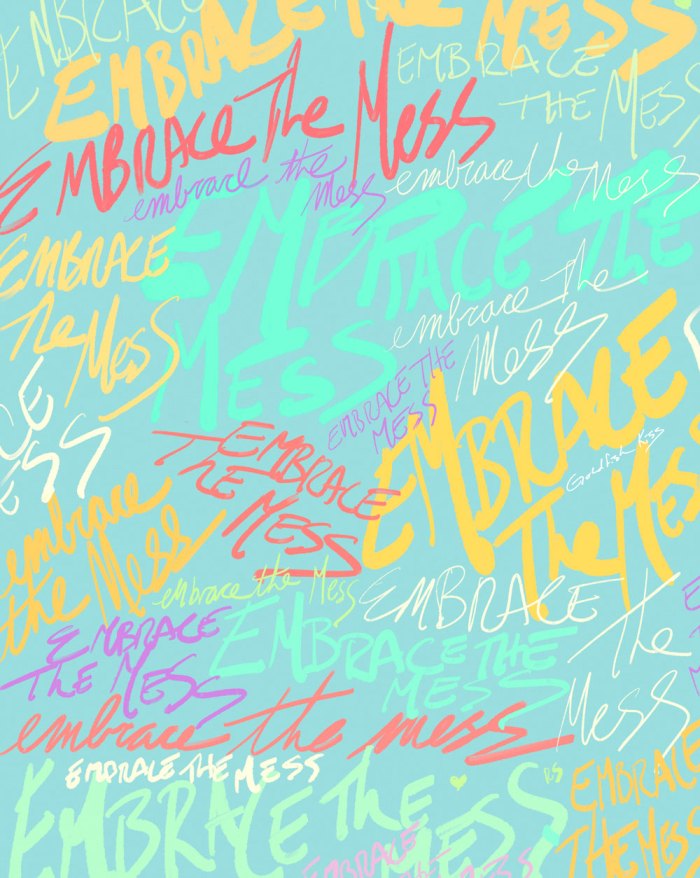 EMBRACE
EMBRACE THE MESS
EMBRACE
THE MESS
EMBRACE The Mess
embrace the
mess
embrace the Mess
EMBRACE
The Mess
EMBRACE The
MESS
embrace the
Mess
EMBRACE THE
MESS
EMBRACE
The Mess
Goldfish Kiss
CE
ESS
EMBRACE
The
MESS
embrace
the Mess
embrace the Mess
EMBRACE
The
Mess
EMBRACE
THE MESS
EMBRACE THE
MESS
embrace the mess
EMBRACE THE MESS
EMBRACE The
MESS
RS
EMBRACE
THE MESS
EMBRACE